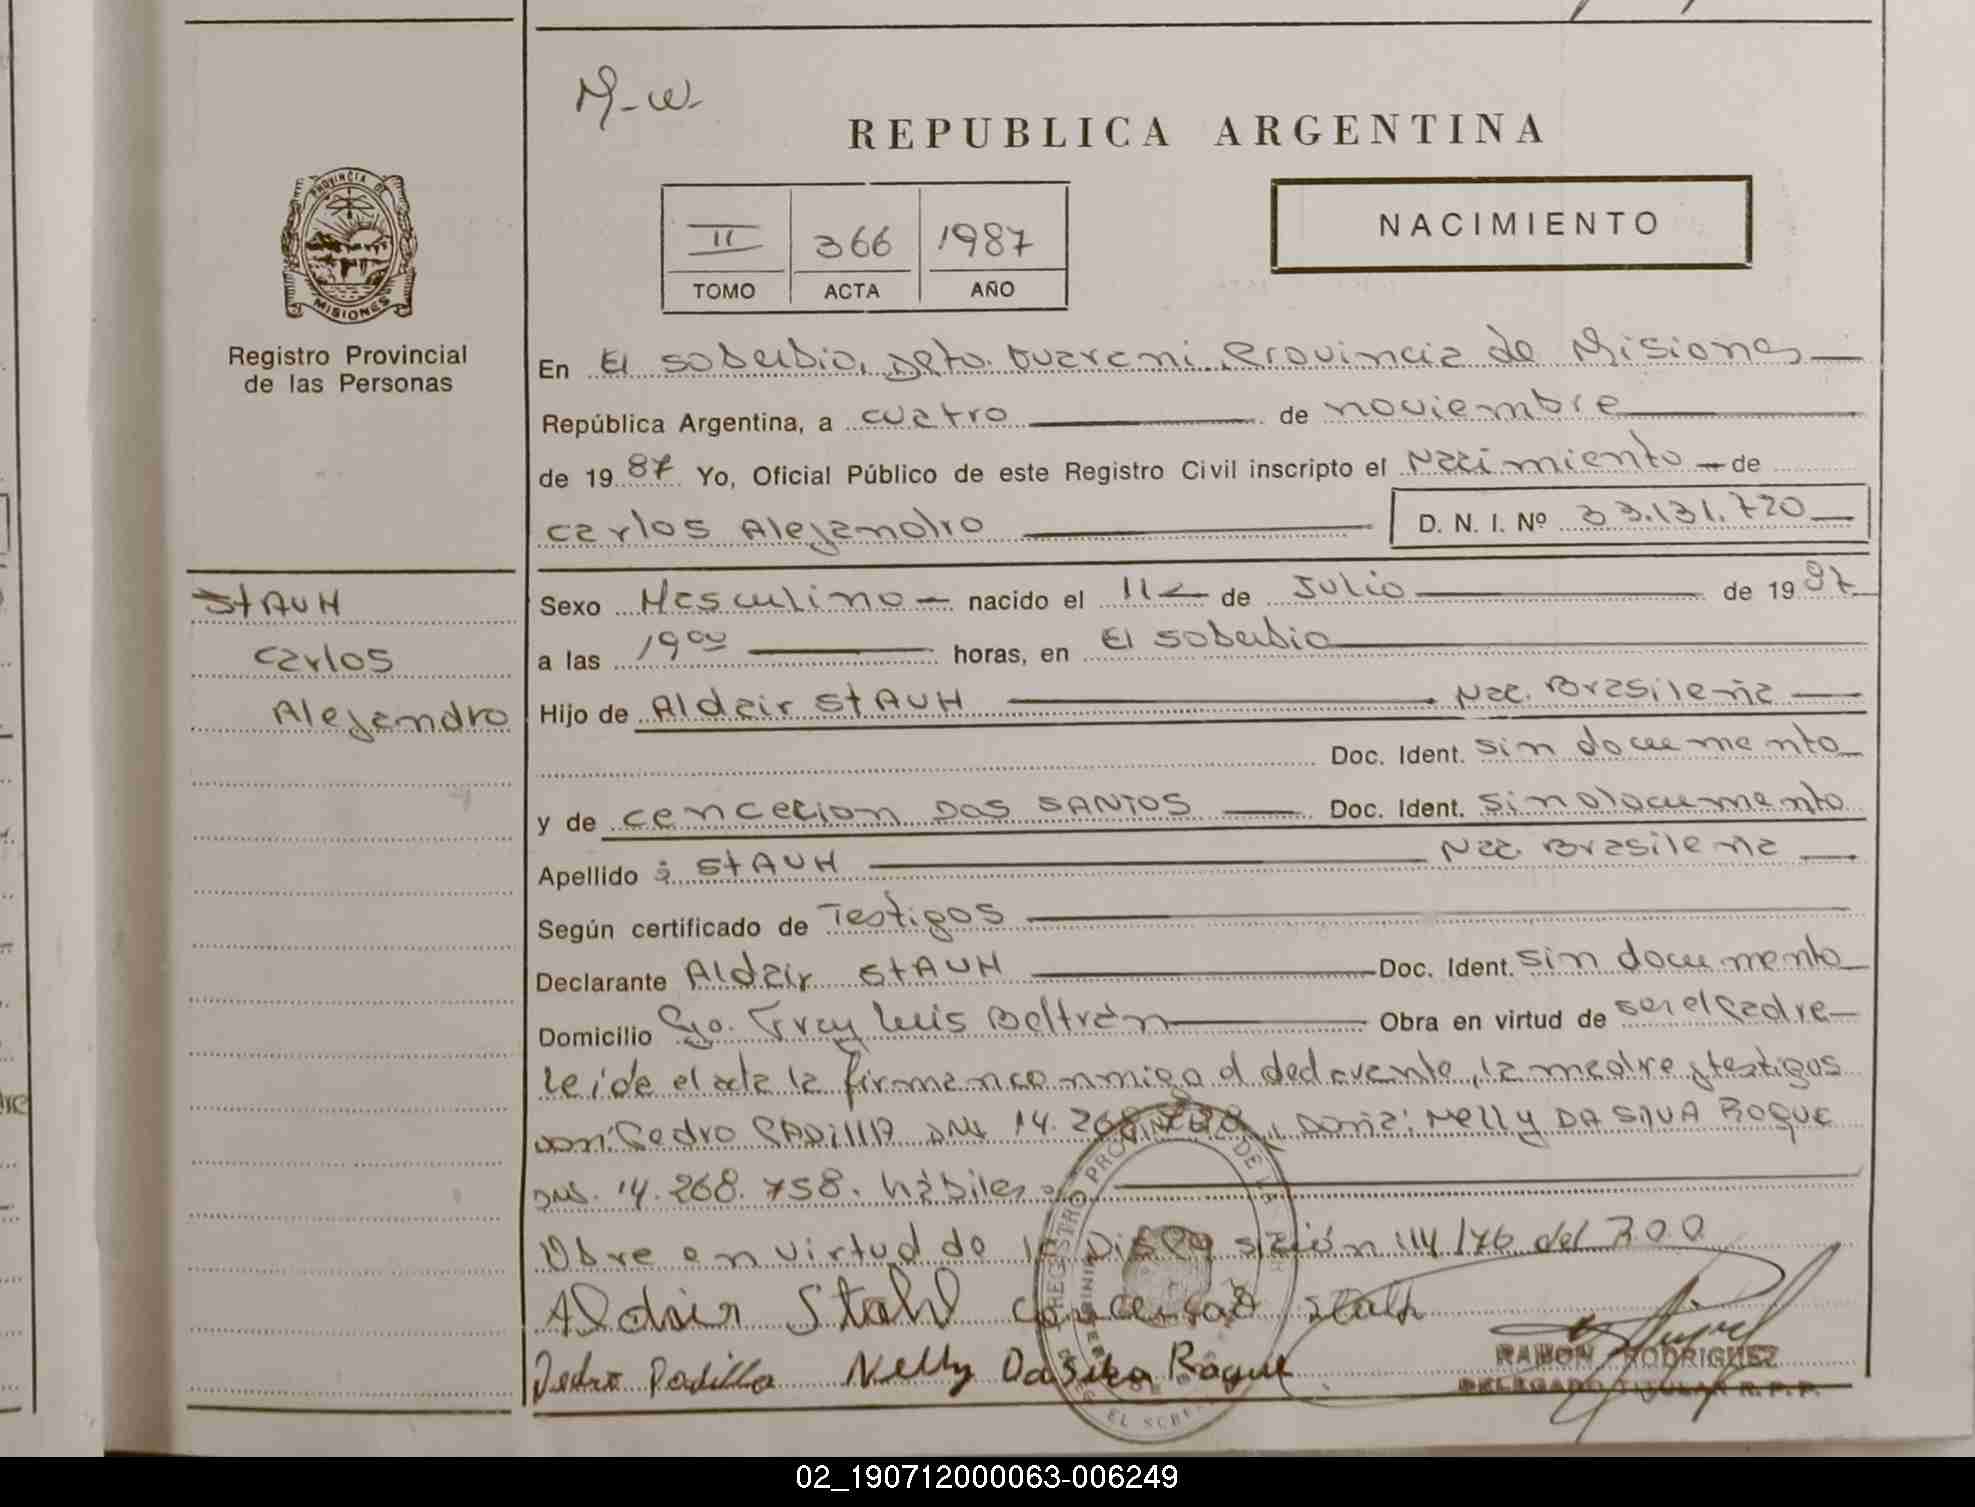 M-W-
REPUBLICA ARGENTINA
II 366 1987
TOMO ACTA AÑO
NACIMIENTO
PROVINCIA DE MISIONES
Registro Provincial
de las Personas
En El Soberbio, Dpto. Guarani, Provincia de Misiones
República Argentina, a cuatro de noviembre
de 1987 Yo, Oficial Público de este Registro Civil inscripto el Nacimiento de
Carlos Alejandro D. N. I. Nº 33.131.720
STAUH
Carlos
Alejandro
Sexo Masculino nacido el 11 de Julio de 1987
a las 19 00 horas, en El Soberbio
Hijo de Aldair STAUH Nac. Brasileña
Doc. Ident. sin documento
y de Cencecion DOS SANTOS Doc. Ident. sin documento
Apellido : STAUH Nac. Brasileña
Según certificado de Testigos
Declarante Aldair STAUH Doc. Ident. sin documento
Domicilio Pjo. Fray Luis Beltrán Obra en virtud de ser el Padre
Leida el acta la firman conmigo el declarante, la madre y testigos
Don: Pedro PADILLA DNI 14.268. Doña: Nelly DA SILVA ROQUE
DNI. 14.268.758. hábiles
Obra en virtud de la Disposición 114/76 del
Aldair Stahl
Pedro Padilla Nelly Da Silva Roque
RAMON RODRIGUEZ
DELEGADO TITULAR R. P. P.
02_190712000063-006249